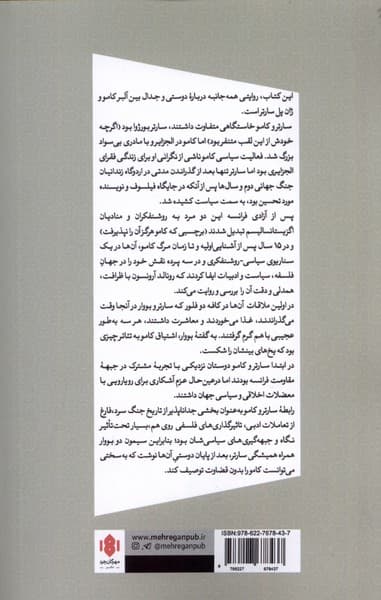 این کتاب، روایتی همه‌جانبه دربارهٔ دوستی و جدال بین آلبر کامو و
ژان پل سارتر است.
سارتر و کامو خاستگاهی متفاوت داشتند، سارتر بورژوا بود (اگرچه
خودش از این لقب متنفر بود) اما کامو در الجزایر و با مادری بی‌سواد
بزرگ شد. فعالیت سیاسی کامو ناشی از نگرانی او برای زندگی فقرای
الجزایری بود اما سارتر تنها بعد از گذراندن مدتی در اردوگاه زندانیان
جنگ جهانی دوم و سال‌ها پس از آنکه در جایگاه فیلسوف و نویسنده
مورد تحسین بود، به سمت سیاست کشیده شد.
پس از آزادی فرانسه این دو مرد به روشنفکران و منادیان
اگزیستانسالیسم تبدیل شدند (برچسبی که کامو هرگز آن را نپذیرفت)
و در ۱۵ سال پس از آشنایی اولیه و تا زمان مرگ کامو، آن‌ها در یک
سناریوی سیاسی-روشنفکری و در سه پرده نقش خود را در جهان
فلسفه، سیاست و ادبیات ایفا کردند که رونالد آرونسون با ظرافت،
همدلی و دقت آن را بررسی و روایت می‌کند.
در اولین ملاقات آن‌ها در کافه دو فلور که سارتر و بووار در آنجا وقت
می‌گذراندند، غذا می‌خوردند و معاشرت داشتند، هر سه به‌طور
عجیبی با هم گرم گرفتند. به گفتهٔ بووار، اشتیاق کامو به تئاتر چیزی
بود که یخ‌های بینشان را شکست.
در ابتدا سارتر و کامو دوستان نزدیکی با تجربهٔ مشترک در جبههٔ
مقاومت فرانسه بودند اما در عین حال عزم آشکاری برای رویارویی با
معضلات اخلاقی و سیاسی جهان داشتند.
رابطهٔ سارتر و کامو به‌عنوان بخشی جداناپذیر از تاریخ جنگ سرد، فارغ
از تعاملات ادبی، تاثیرگذاری‌های فلسفی روی هم، بسیار تحت‌تأثیر
نگاه و جبهه‌گیری‌های سیاسی‌شان بود؛ بنابراین سیمون دو بووار
همراه همیشگی سارتر، بعد از پایان دوستی آن‌ها نوشت که به‌سختی
می‌توانست کامو را بدون قضاوت توصیف کند.
مهرگان خرد
www.mehreganpub.ir
@mehreganpub
ISBN: 978-622-7678-43-7
9 786227 678437